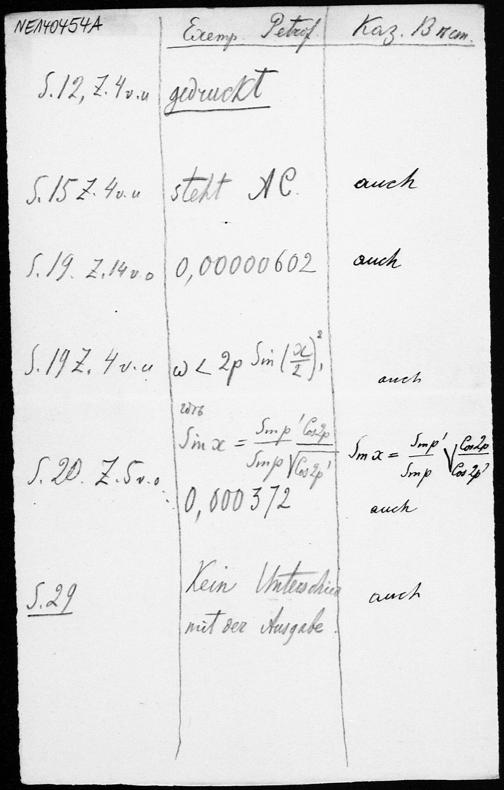 NE140454A
Exemp. Petrof. Kaz. Вѣст.
S.12, Z. 4 v.u gedruckt
S.15 Z. 4 v.u steht AC. auch
S.19. Z. 14 v.o 0,00000602 auch
S.19 Z. 4 v.u ω < 2p Sin (x/2)², auch
Sin x = Sin p' Cos 2p / Sin p √Cos 2p' Sin x = Sin p' / Sin p √(Cos 2p / Cos 2p')
S. 20. Z. 5 v.o
0,000372 auch
S. 29 Kein Unterschied auch
mit der Ausgabe.